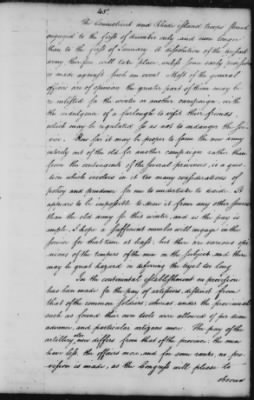 45.
The Connecticut and Rhode island troops stand
engaged to the first of december only, and none longer
than to the first of January. A dissolution of the present
army therefore will take place, unless some early provision
is made against such an event. Most of the general
officers are of opinion the greater part of them may be
re inlisted for the winter or another campaign, with
the indulgence of a furlough to visit their friends,
which may be regulated so as not to endanger the ser-
vice. How far it may be proper to form the new army
entirely out of the old, for another campaign, rather than
from the contingents of the several provinces, is a ques-
tion which involves in it too many considerations of
policy and prudence for me to undertake to decide. It
appears to be impossible to draw it from any other source
than the old army for this winter, and as the pay is
ample, I hope a sufficient number will engage in the
service for that time at least. but there are various opin-
ions of the temper of the men on the subject, and there
may be great hazard in deferring the tryal too long
In the continental establishment no provision
has been made for the pay of artificers, different from
that of the common soldiers, whereas under the provincial
such as found their own tools were allowed pr. diem
advance, and particular artizans more. The pay of the
artillery also now differs from that of the province; the men
have less, the officers more, and for some ranks, no pro-
vision is made, as the Congress will please to
observe